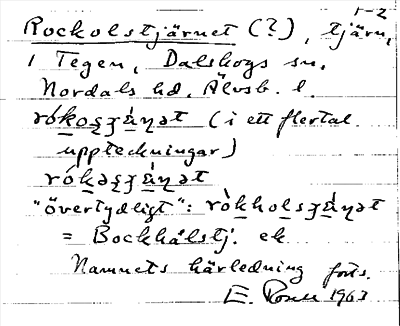 1-2
Rockolstjärnet (?), tjärn,
i Tegen, Dalskogs sn.
Nordals hd, Älvsb. l.
rókoʂʒä́ɳət (i ett flertal
uppteckningar)
rókəʂʒä́ɳət
"övertydligt": ròkholsʒä́ɳət
= Bockhålstj. ek
Namnets härledning forts.
E. 1963